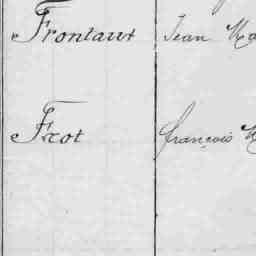 Frontaut Jean
Frot françois